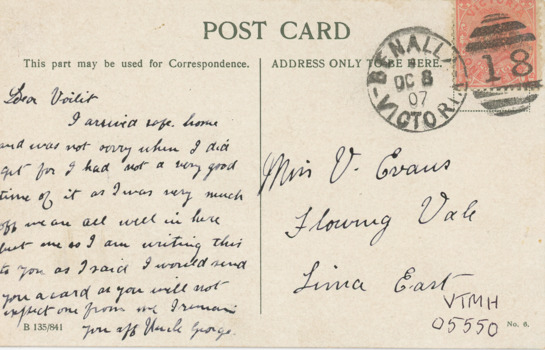 POST CARD
This part may be used for Correspondence.
ADDRESS ONLY TO BE HERE.
BENALLA
OC 8
07
VICTORIA
VICTORIA
18
Dear Voilit
I arrived safe home
and was not sorry when I did
get for I had not a very good
time of it as I was very much
off we are all well in here
but me as I am writing this
to you as I said I would send
you a card as you will not
expect one from me I remain
you aff Uncle George.
Miss V. Evans
Flowing Vale
Lima East
VTMH
05550
B 135/841
No. 6.